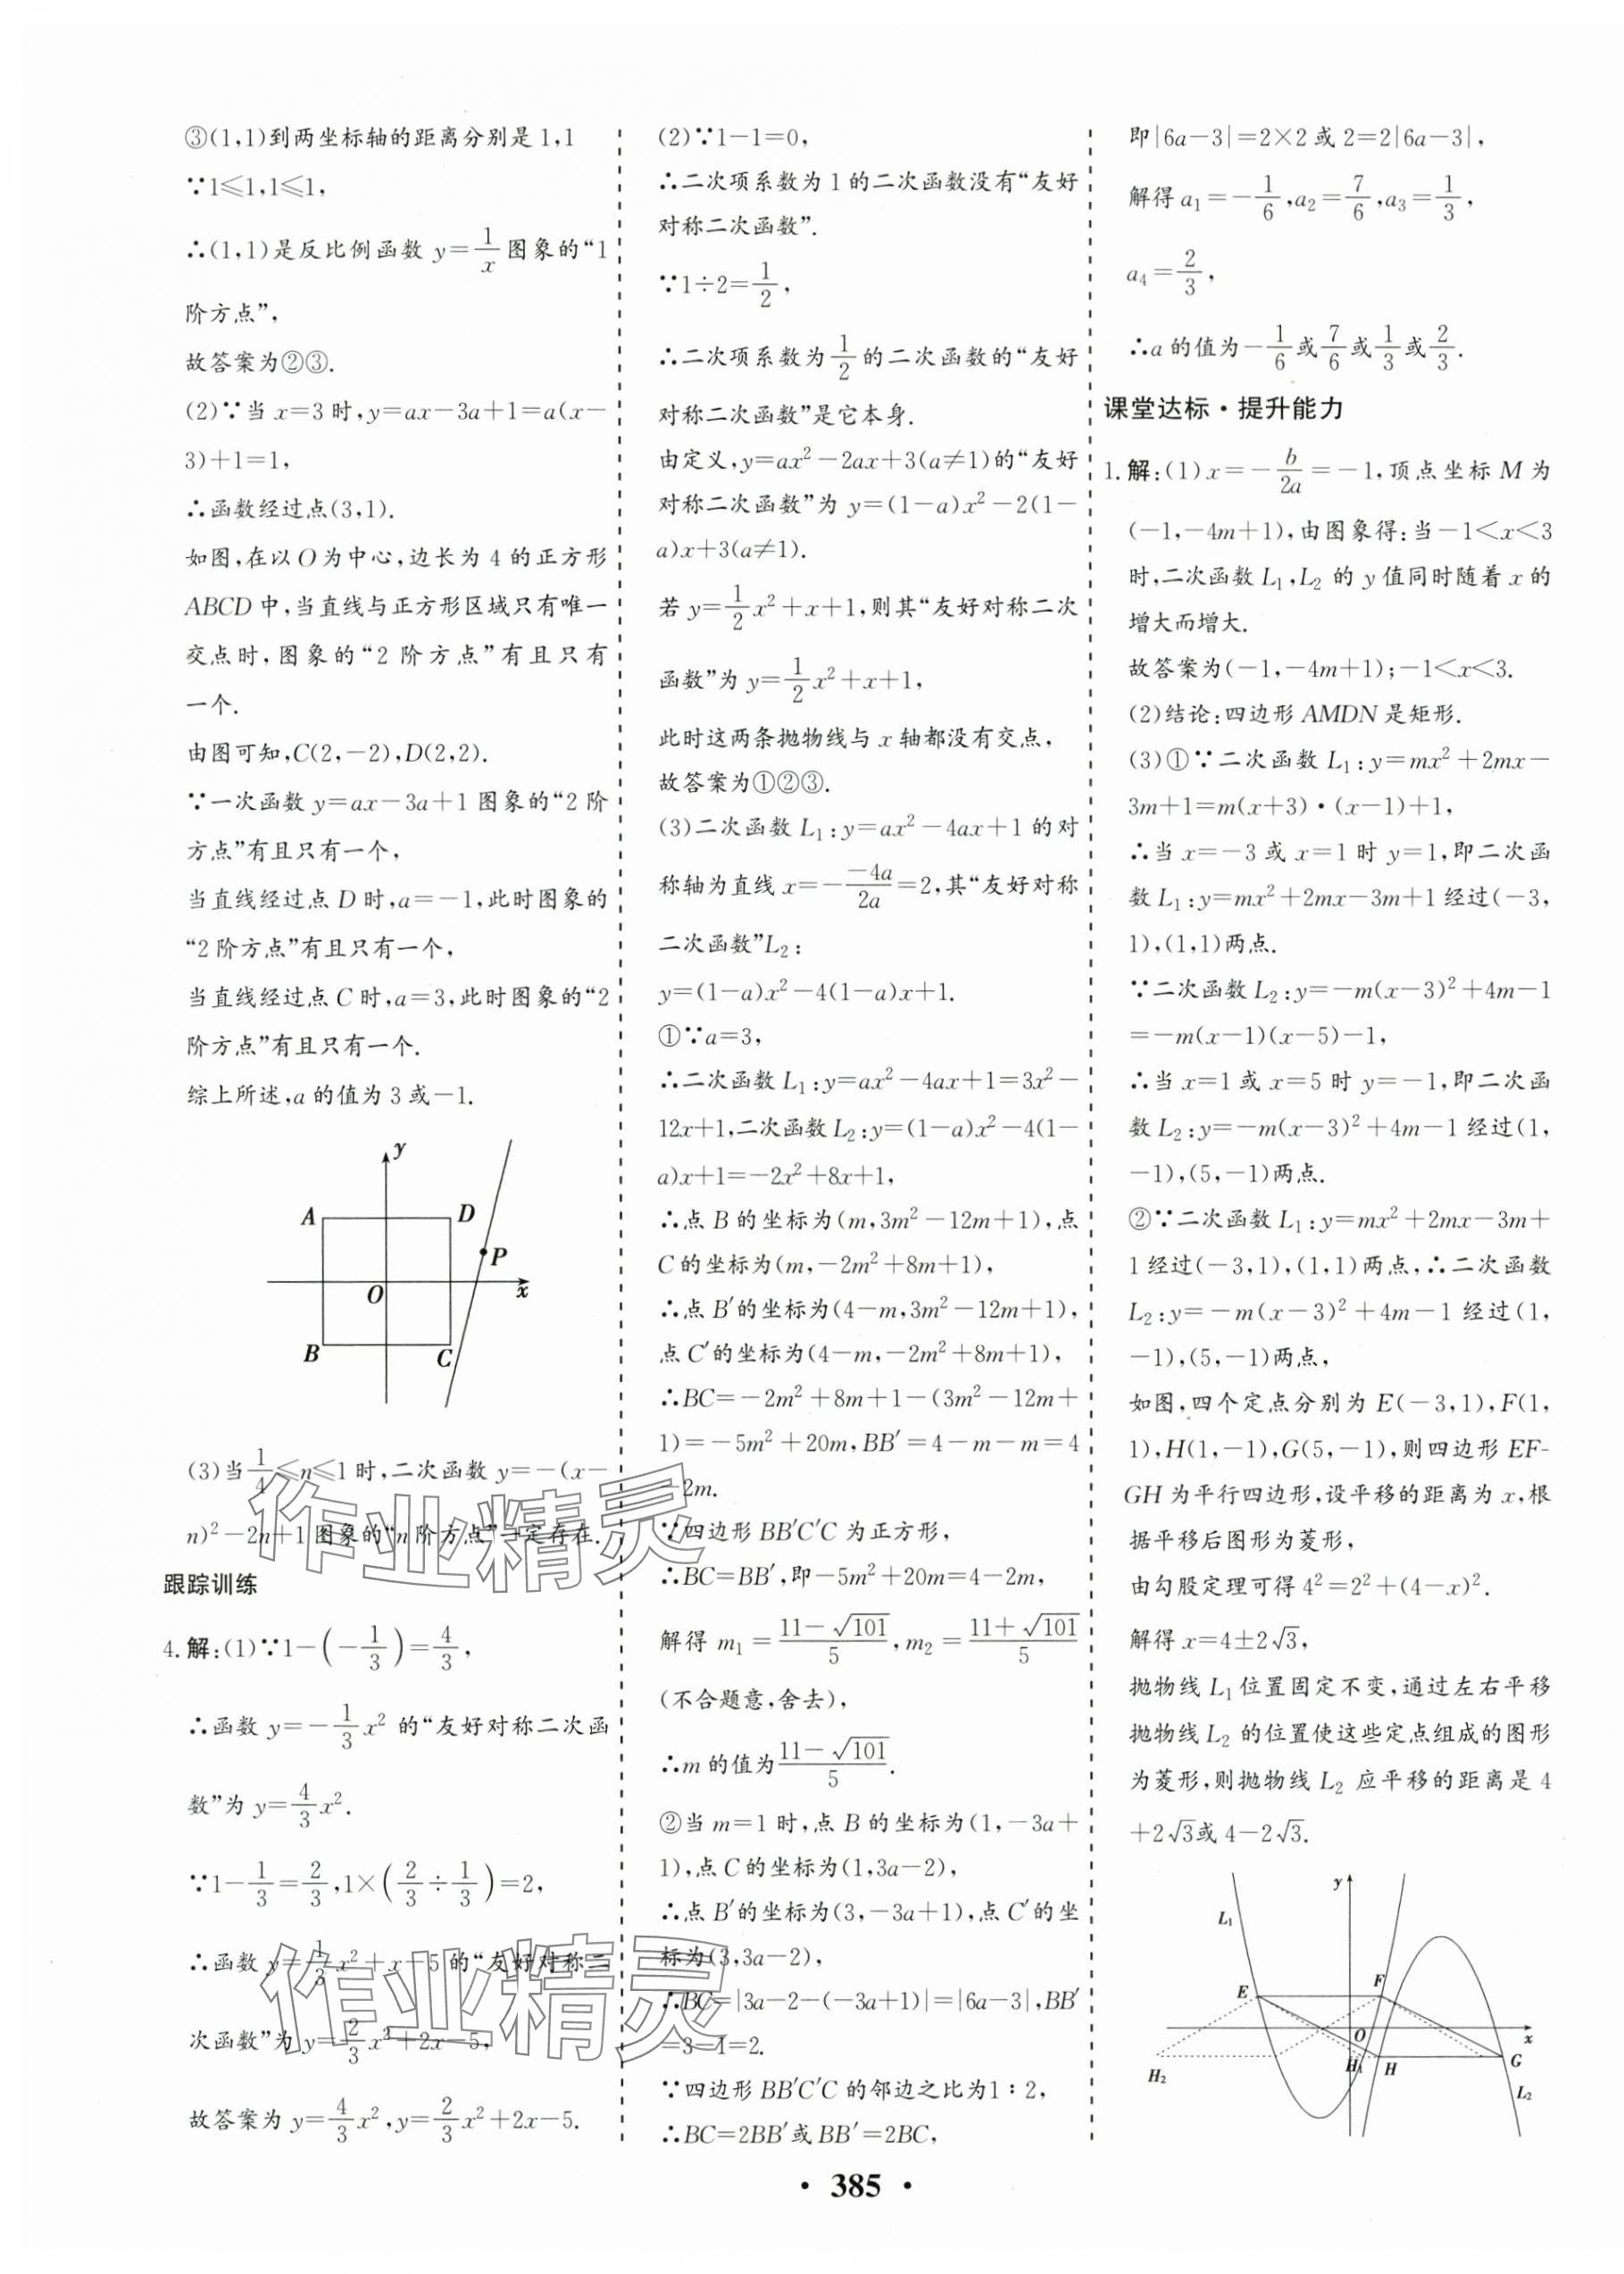 ③(1,1)到两坐标轴的距离分别是1,1
∵1⩽1,1⩽1,
∴(1,1)是反比例函数 y=1/x 图象的“1
阶方点”,
故答案为②③.
(2)∵当 x=3 时,y=ax-3a+1=a(x-
3)+1=1,
∴函数经过点(3,1).
如图,在以O为中心,边长为4的正方形
ABCD中,当直线与正方形区域只有唯一
交点时,图象的“2阶方点”有且只有
一个.
由图可知,C(2,-2),D(2,2).
∵一次函数 y=ax-3a+1 图象的“2阶
方点”有且只有一个,
当直线经过点D时,a=-1,此时图象的
“2阶方点”有且只有一个,
当直线经过点C时,a=3,此时图象的“2
阶方点”有且只有一个.
综上所述,a的值为3或-1.
y
A
D
P
O
x
B
C
(3)当1/4⩽n⩽1时,二次函数 y=-(x-
n)²-2n+1图象的“n阶方点”一定存在.
跟踪训练
4.解:(1)∵1-(-1/3)=4/3,
∴函数 y=-1/3x² 的“友好对称二次函
数”为 y=4/3x².
∵1-1/3=2/3,1×(2/3÷1/3)=2,
∴函数 y=1/3x²+x-5的“友好对称二
次函数”为 y=2/3x²+2x-5,
故答案为 y=4/3x²,y=2/3x²+2x-5.
(2)∵1-1=0,
∴二次项系数为1的二次函数没有“友好
对称二次函数”.
∵1÷2=1/2,
∴二次项系数为1/2的二次函数的“友好
对称二次函数”是它本身.
由定义,y=ax²-2ax+3(a≠1)的“友好
对称二次函数”为 y=(1-a)x²-2(1-
a)x+3(a≠1).
若 y=1/2x²+x+1,则其“友好对称二次
函数”为 y=1/2x²+x+1,
此时这两条抛物线与x轴都没有交点,
故答案为①②③.
(3)二次函数L₁:y=ax²-4ax+1的对
称轴为直线 x=--4a/2a=2,其“友好对称
二次函数”L₂:
y=(1-a)x²-4(1-a)x+1.
①∵a=3,
∴二次函数L₁:y=ax²-4ax+1=3x²-
12x+1,二次函数L₂:y=(1-a)x²-4(1-
a)x+1=-2x²+8x+1,
∴点B的坐标为(m,3m²-12m+1),点
C的坐标为(m,-2m²+8m+1),
∴点B′的坐标为(4-m,3m²-12m+1),
点C′的坐标为(4-m,-2m²+8m+1),
∴BC=-2m²+8m+1-(3m²-12m+
1)=-5m²+20m,BB′=4-m-m=4
-2m.
∵四边形BB′C′C为正方形,
∴BC=BB′,即-5m²+20m=4-2m,
解得 m₁=(11-√101)/5,m₂=(11+√101)/5
(不合题意,舍去),
∴m的值为(11-√101)/5.
②当m=1时,点B的坐标为(1,-3a+
1),点C的坐标为(1,3a-2),
∴点B′的坐标为(3,-3a+1),点C′的坐
标为(3,3a-2),
∴BC=|3a-2-(-3a+1)|=|6a-3|,BB′
=3-1=2.
∵四边形BB′C′C的邻边之比为1∶2,
∴BC=2BB′或BB′=2BC,
即|6a-3|=2×2或2=2|6a-3|,
解得 a₁=-1/6,a₂=7/6,a₃=1/3,
a₄=2/3,
∴a的值为-1/6或7/6或1/3或2/3.
课堂达标·提升能力
1.解:(1)x=-b/2a=-1,顶点坐标M为
(-1,-4m+1),由图象得:当-1<x<3
时,二次函数L₁,L₂的y值同时随着x的
增大而增大.
故答案为(-1,-4m+1);-1<x<3.
(2)结论:四边形AMDN是矩形.
(3)①∵二次函数L₁:y=mx²+2mx-
3m+1=m(x+3)·(x-1)+1,
∴当x=-3或x=1时y=1,即二次函
数L₁:y=mx²+2mx-3m+1经过(-3,
1),(1,1)两点.
∵二次函数L₂:y=-m(x-3)²+4m-1
=-m(x-1)(x-5)-1,
∴当x=1或x=5时y=-1,即二次函
数L₂:y=-m(x-3)²+4m-1经过(1,
-1),(5,-1)两点.
②∵二次函数L₁:y=mx²+2mx-3m+
1经过(-3,1),(1,1)两点,∴二次函数
L₂:y=-m(x-3)²+4m-1经过(1,
-1),(5,-1)两点,
如图,四个定点分别为E(-3,1),F(1,
1),H(1,-1),G(5,-1),则四边形EF-
GH为平行四边形,设平移的距离为x,根
据平移后图形为菱形,
由勾股定理可得4²=2²+(4-x)².
解得x=4±2√3,
抛物线L₁位置固定不变,通过左右平移
抛物线L₂的位置使这些定点组成的图形
为菱形,则抛物线L₂应平移的距离是4
+2√3或4-2√3.
y
L₁
E
F
O
x
H₂
H₁
H
G
L₂
作业精灵
作业精灵
· 385 ·